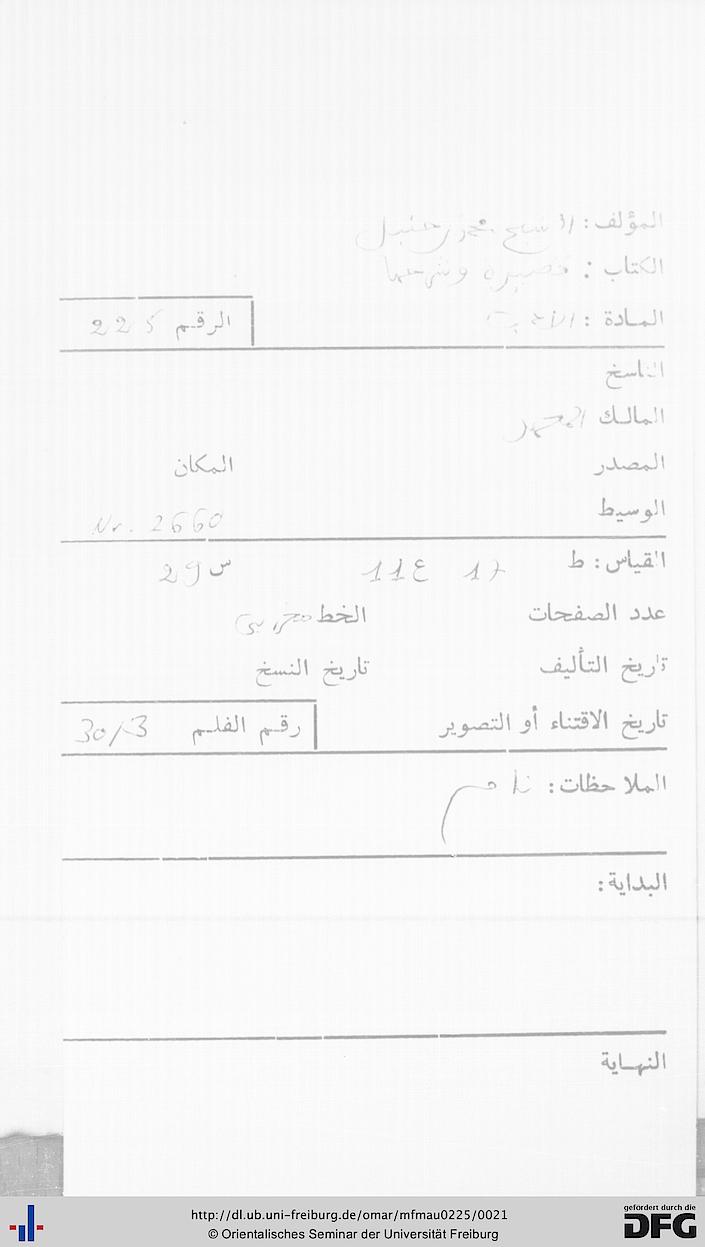 المؤلف: الشيخ محمد بن حنبل
الكتاب: قصيدة وشرحها
المادة: الأدب
الرقم 225
الناسخ
المالك المحمد
المصدر المكان
الوسيط
Nr. 2660
القياس: ط 17 ع 11 س 29
عدد الصفحات الخط مغربي
تاريخ التأليف تاريخ النسخ
تاريخ الاقتناء أو التصوير
رقم الفلم 30/3
الملاحظات: تام
البداية:
النهاية
http://dl.ub.uni-freiburg.de/omar/mfmau0225/0021
© Orientalisches Seminar der Universität Freiburg
gefördert durch die
DFG